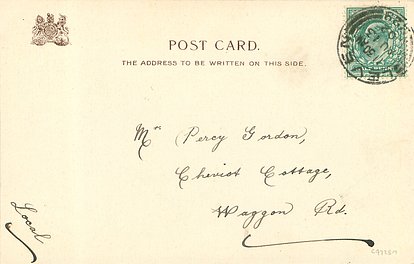 POST CARD.
THE ADDRESS TO BE WRITTEN ON THIS SIDE.
Mrs Percy Gordon,
Cheviot Cottage,
Waggon Rd.
Local